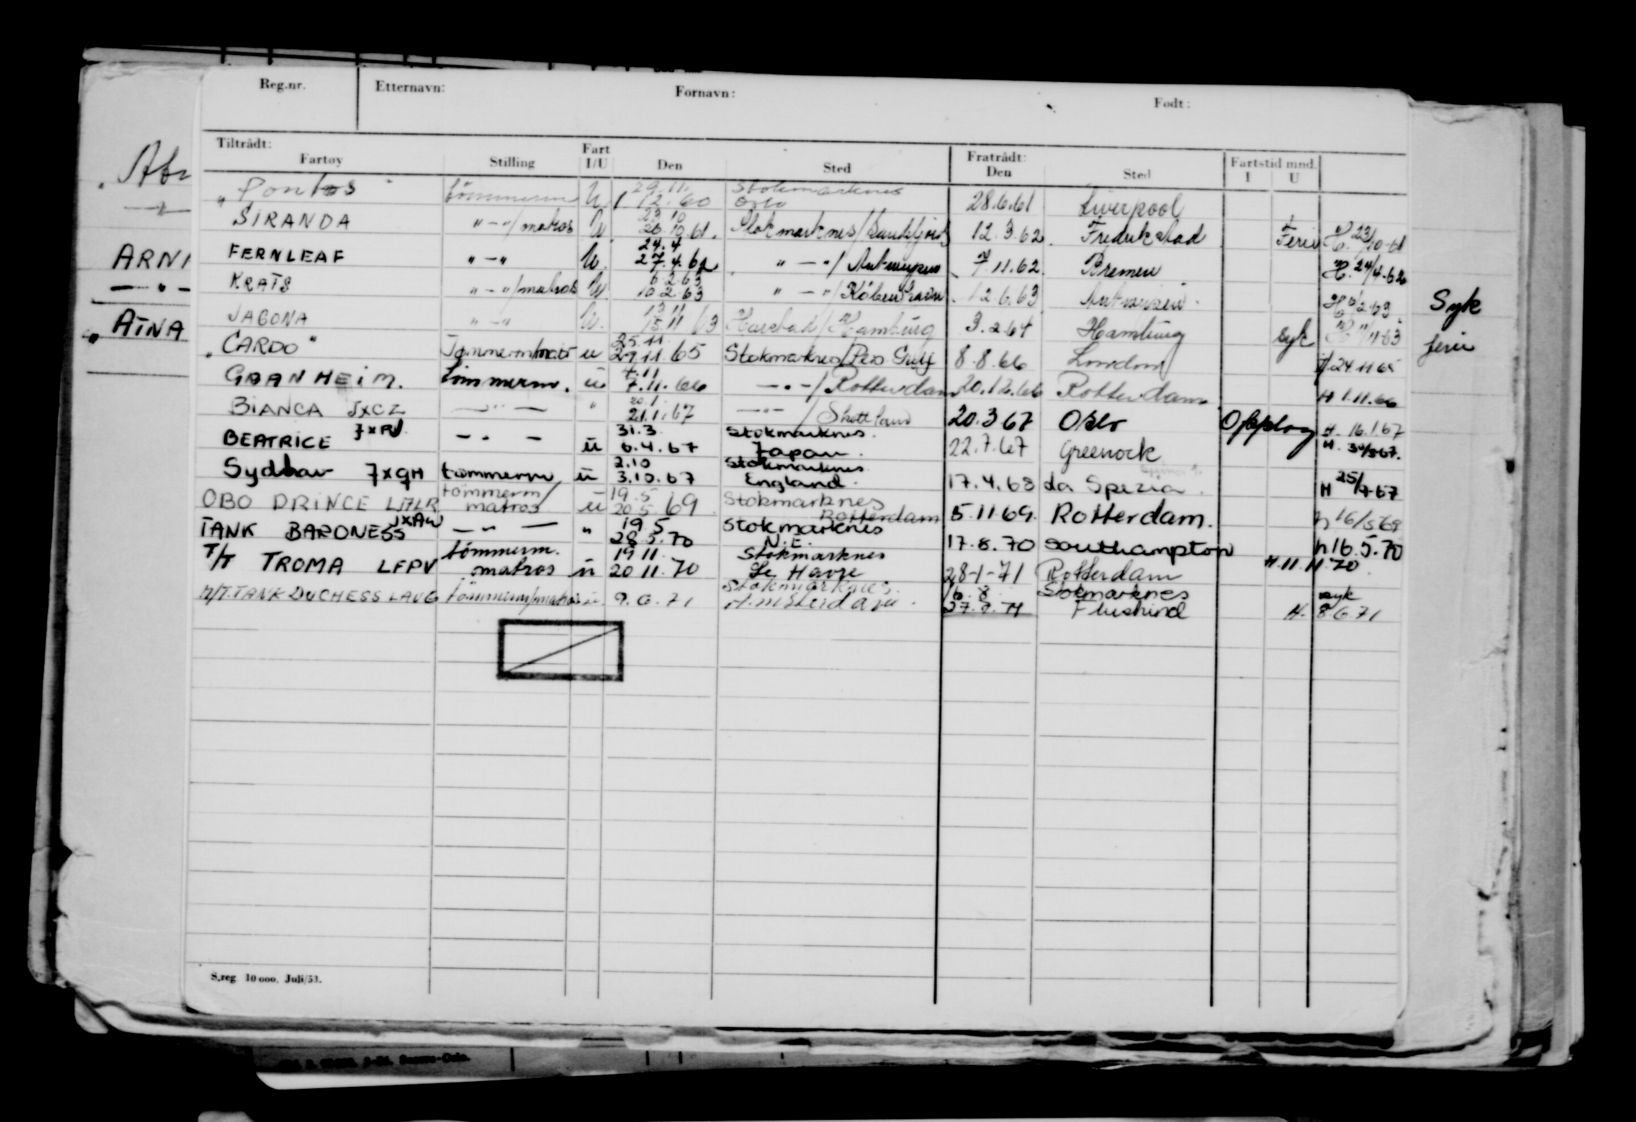 Reg.nr. Etternavn: Fornavn: Født:
Tiltrådt: Fratrådt: Fartstid mnd.
Fartøy Stilling Fart I/U Den Sted Den Sted I U
"Pontos" tömmerm U 29.11. 1.12.60 Stokmarknes Oslo 28.6.61 Liverpool
SIRANDA " - "/matros U 23.10 26.10.61. Stokmarknes/ 12.3.62. Fredrikstad Ferie H. 23/10-61
FERNLEAF " - " U. 24.4 27.4.62 " - "/ Antwerpen 7.11.62. Bremen H. 24/4.62
KRATS " - "/matros U 10.2.63 " - "/ København. 12.6.63 Antwerpen.
JAGONA " - " U. 15.11 63 Harstad / Hamburg 3.2.64 Hamburg syk
"CARDO" Tømmerm/matr u 25.11 27.11.65 Stokmarknes/Pers Gulf 8.8.66 London 24.11 65
GRANHEIM. tømmerm. u 7.11.66 - " - / Rotterdam 20.12.66 Rotterdam H 1.11.66
BIANCA JXCZ - " - " 20.1. 21.1.67 - " - / Shottland 20.3 67 Oslo Opplag H. 16.1.67
BEATRICE - " - u 31.3. 6.4.67 Stokmarknes. Japan. 22.7.67 Greenock
Sydhav JXQH tømmerm u 2.10 3.10.67 Stokmarknes England. 17.4.68 La Spezia. H 25/9 67
OBO PRINCE LMLR tømmerm/ matros u 19.5 20.5 69 Stokmarknes Rotterdam 5.11 69. Rotterdam. H 16/5 69
TANK BARONESS JXAW - " - " 19.5 28.5.70 Stokmarknes N.E. 17.8.70 Southampton H 16.5.70
T/T TROMA LFPV tømmerm. matros u 19 11. 20 11.70 Stokmarknes Le Havre 28-1-71 Rotterdam H. 11 11 70
M/T. TANK DUCHESS LAUG tömmerm/matros u 9.6.71 Stokmarknes. Amsterdam. 16.8. Stokmarknes syk H. 8.6.71
S.reg. 10 000. Juli/53.
ARNI
"AINA
Syk
ferie